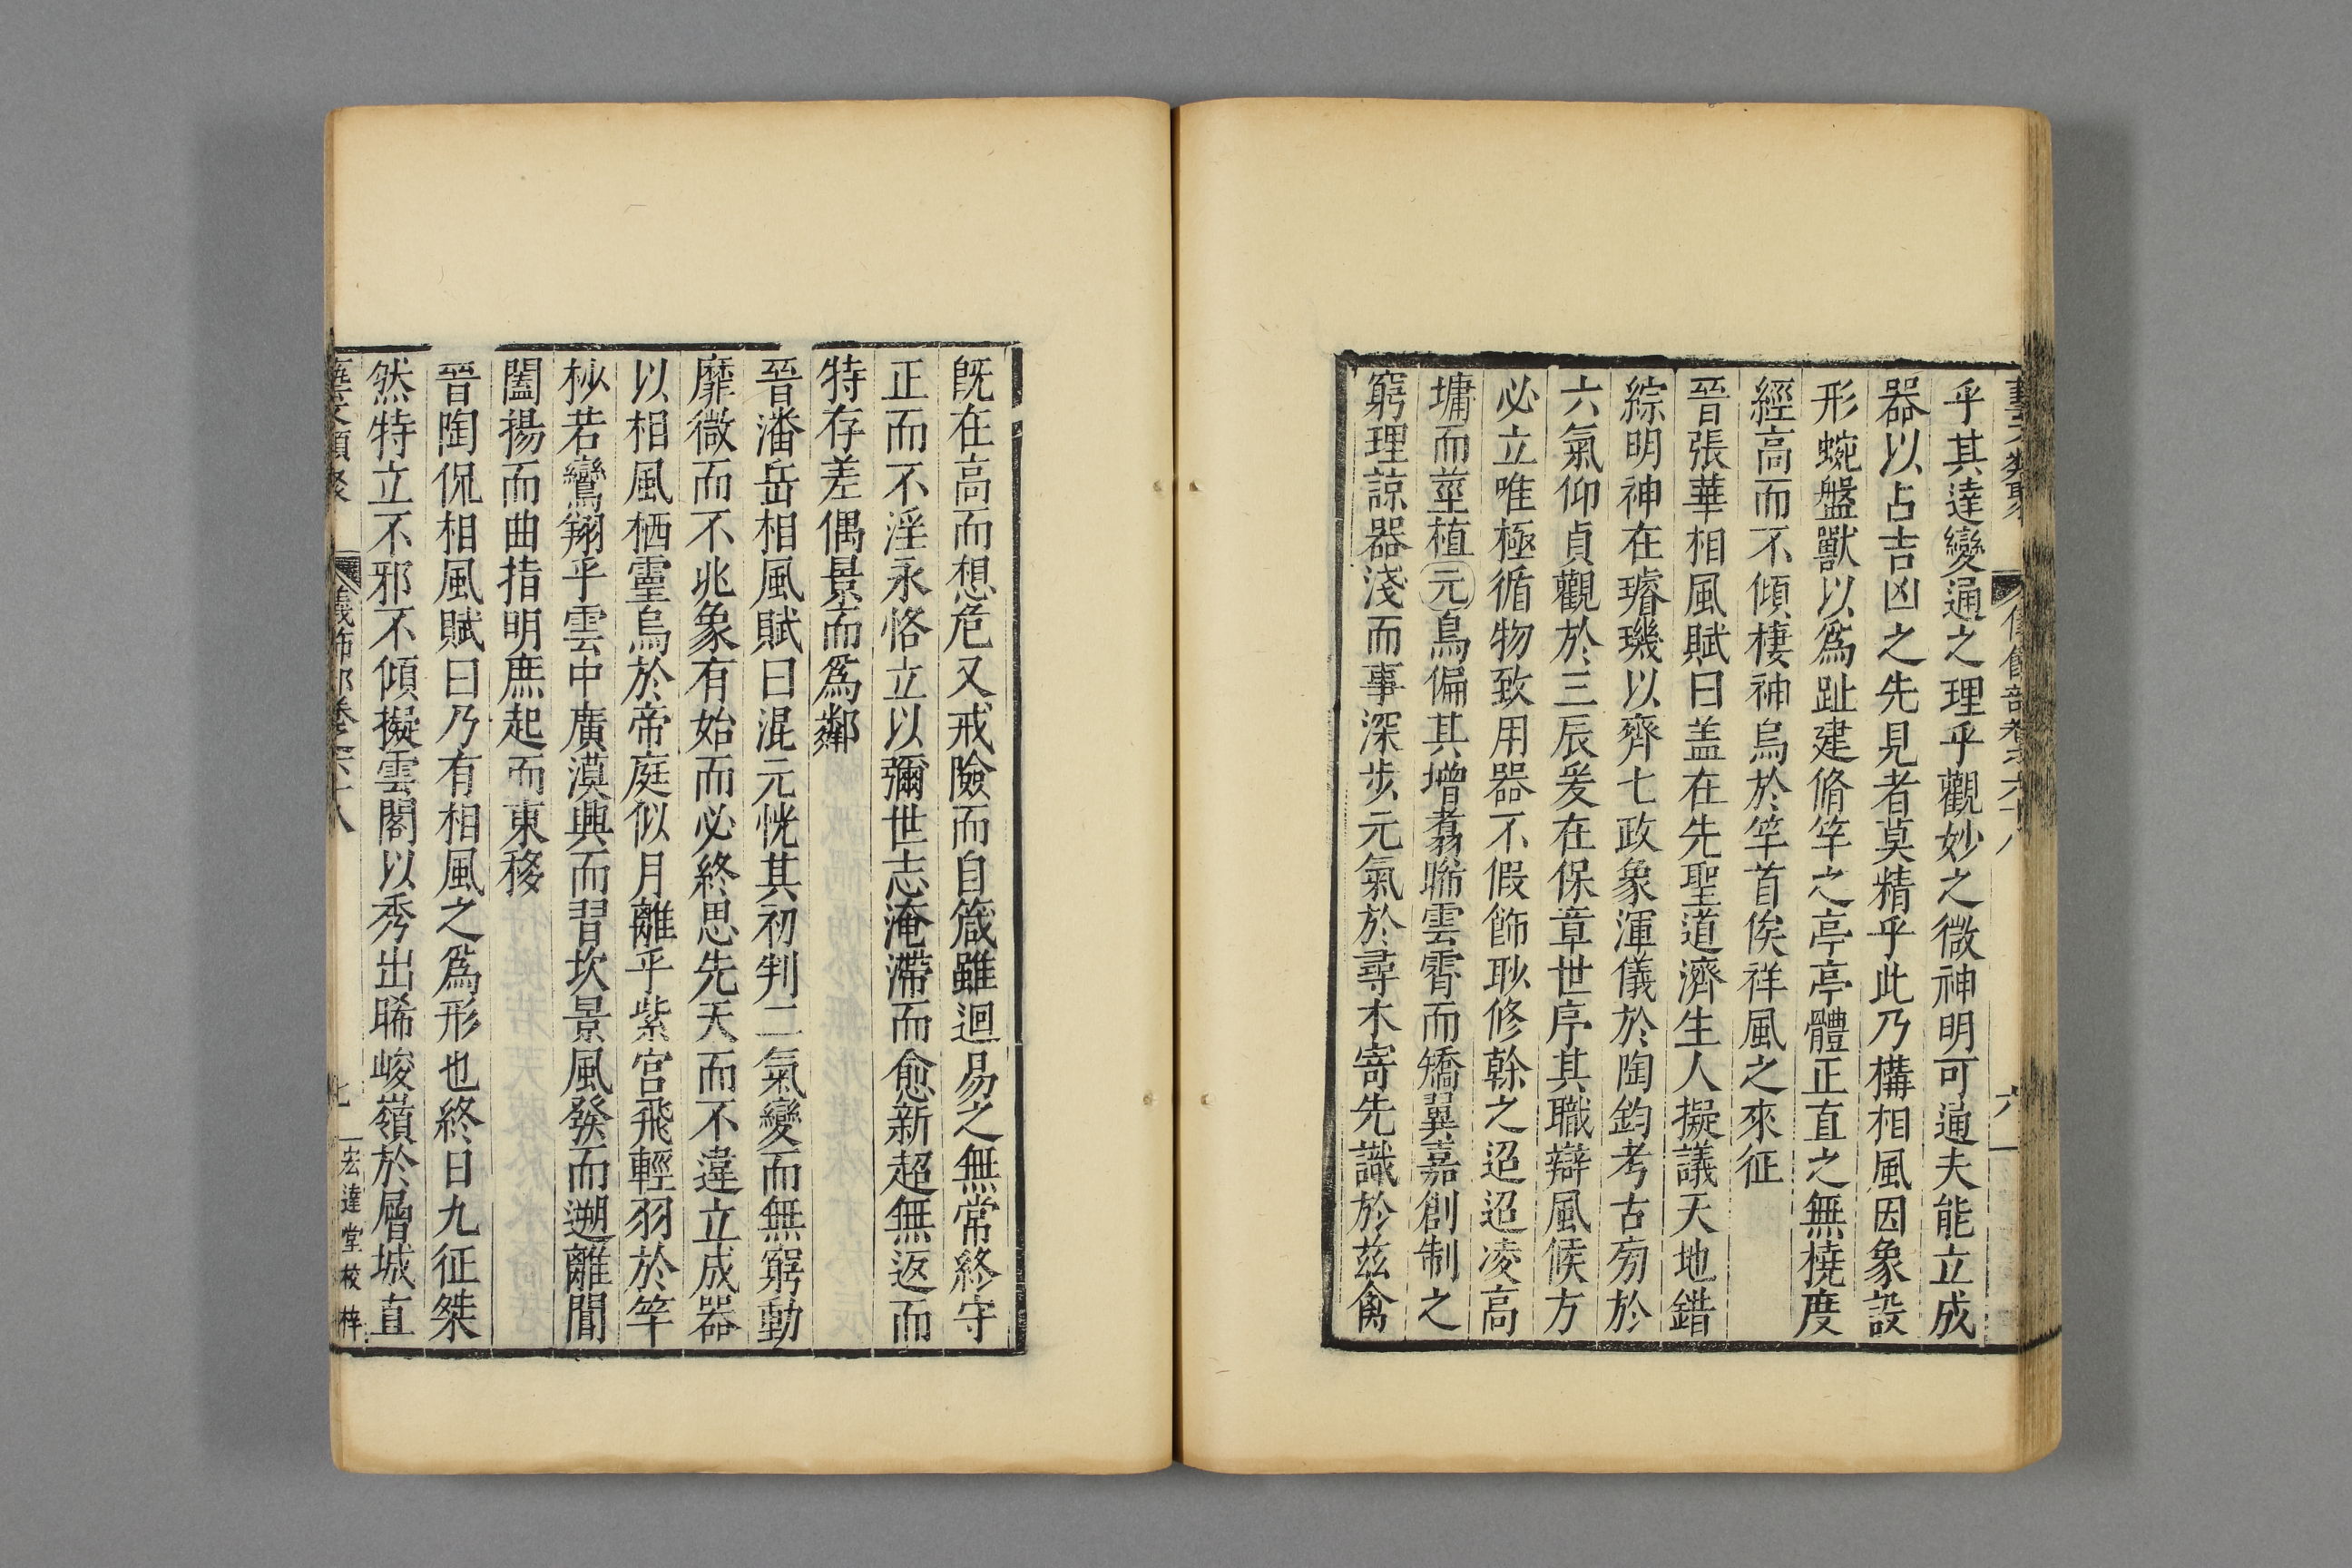 藝文類聚 儀飾部卷六十八 六
乎其達變通之理乎觀妙之微神明可通夫能立成
器以占吉凶之先見者莫精乎此乃構相風因象設
形蜿盤獸以為趾建脩竿之亭亭體正直之無橈度
經高而不傾棲神烏於竿首俟祥風之來征
晉張華相風賦曰盖在先聖道濟生人擬議天地錯
綜明神在璿璣以齊七政象渾儀於陶鈞考古旁於
六氣仰貞觀於三辰爰在保章世序其職辯風候方
必立唯極循物致用器不假飾耿修榦之迢迢凌高
墉而莖植元鳥偏其增翥睎雲霄而矯翼嘉創制之
窮理諒器淺而事深步元氣於尋木寄先識於兹禽
旣在高而想危又戒險而自箴雖迴易之無常終守
正而不淫永恪立以彌世志淹滯而愈新超無返而
特存差偶景而為鄰
晉潘岳相風賦曰混元恍其初判二氣變而無窮動
靡微而不兆象有始而必終思先天而不違立成器
以相風栖靈烏於帝庭似月離乎紫宮飛輕羽於竿
杪若鸞翔乎雲中廣漠興而習坎景風發而遡離閶
闔揚而曲指明庶起而東移
晉陶侃相風賦曰乃有相風之為形也終日九征桀
然特立不邪不傾擬雲閣以秀出睎峻嶺於層城直
藝文類聚 儀飾部卷六十八 七 宏達堂校梓